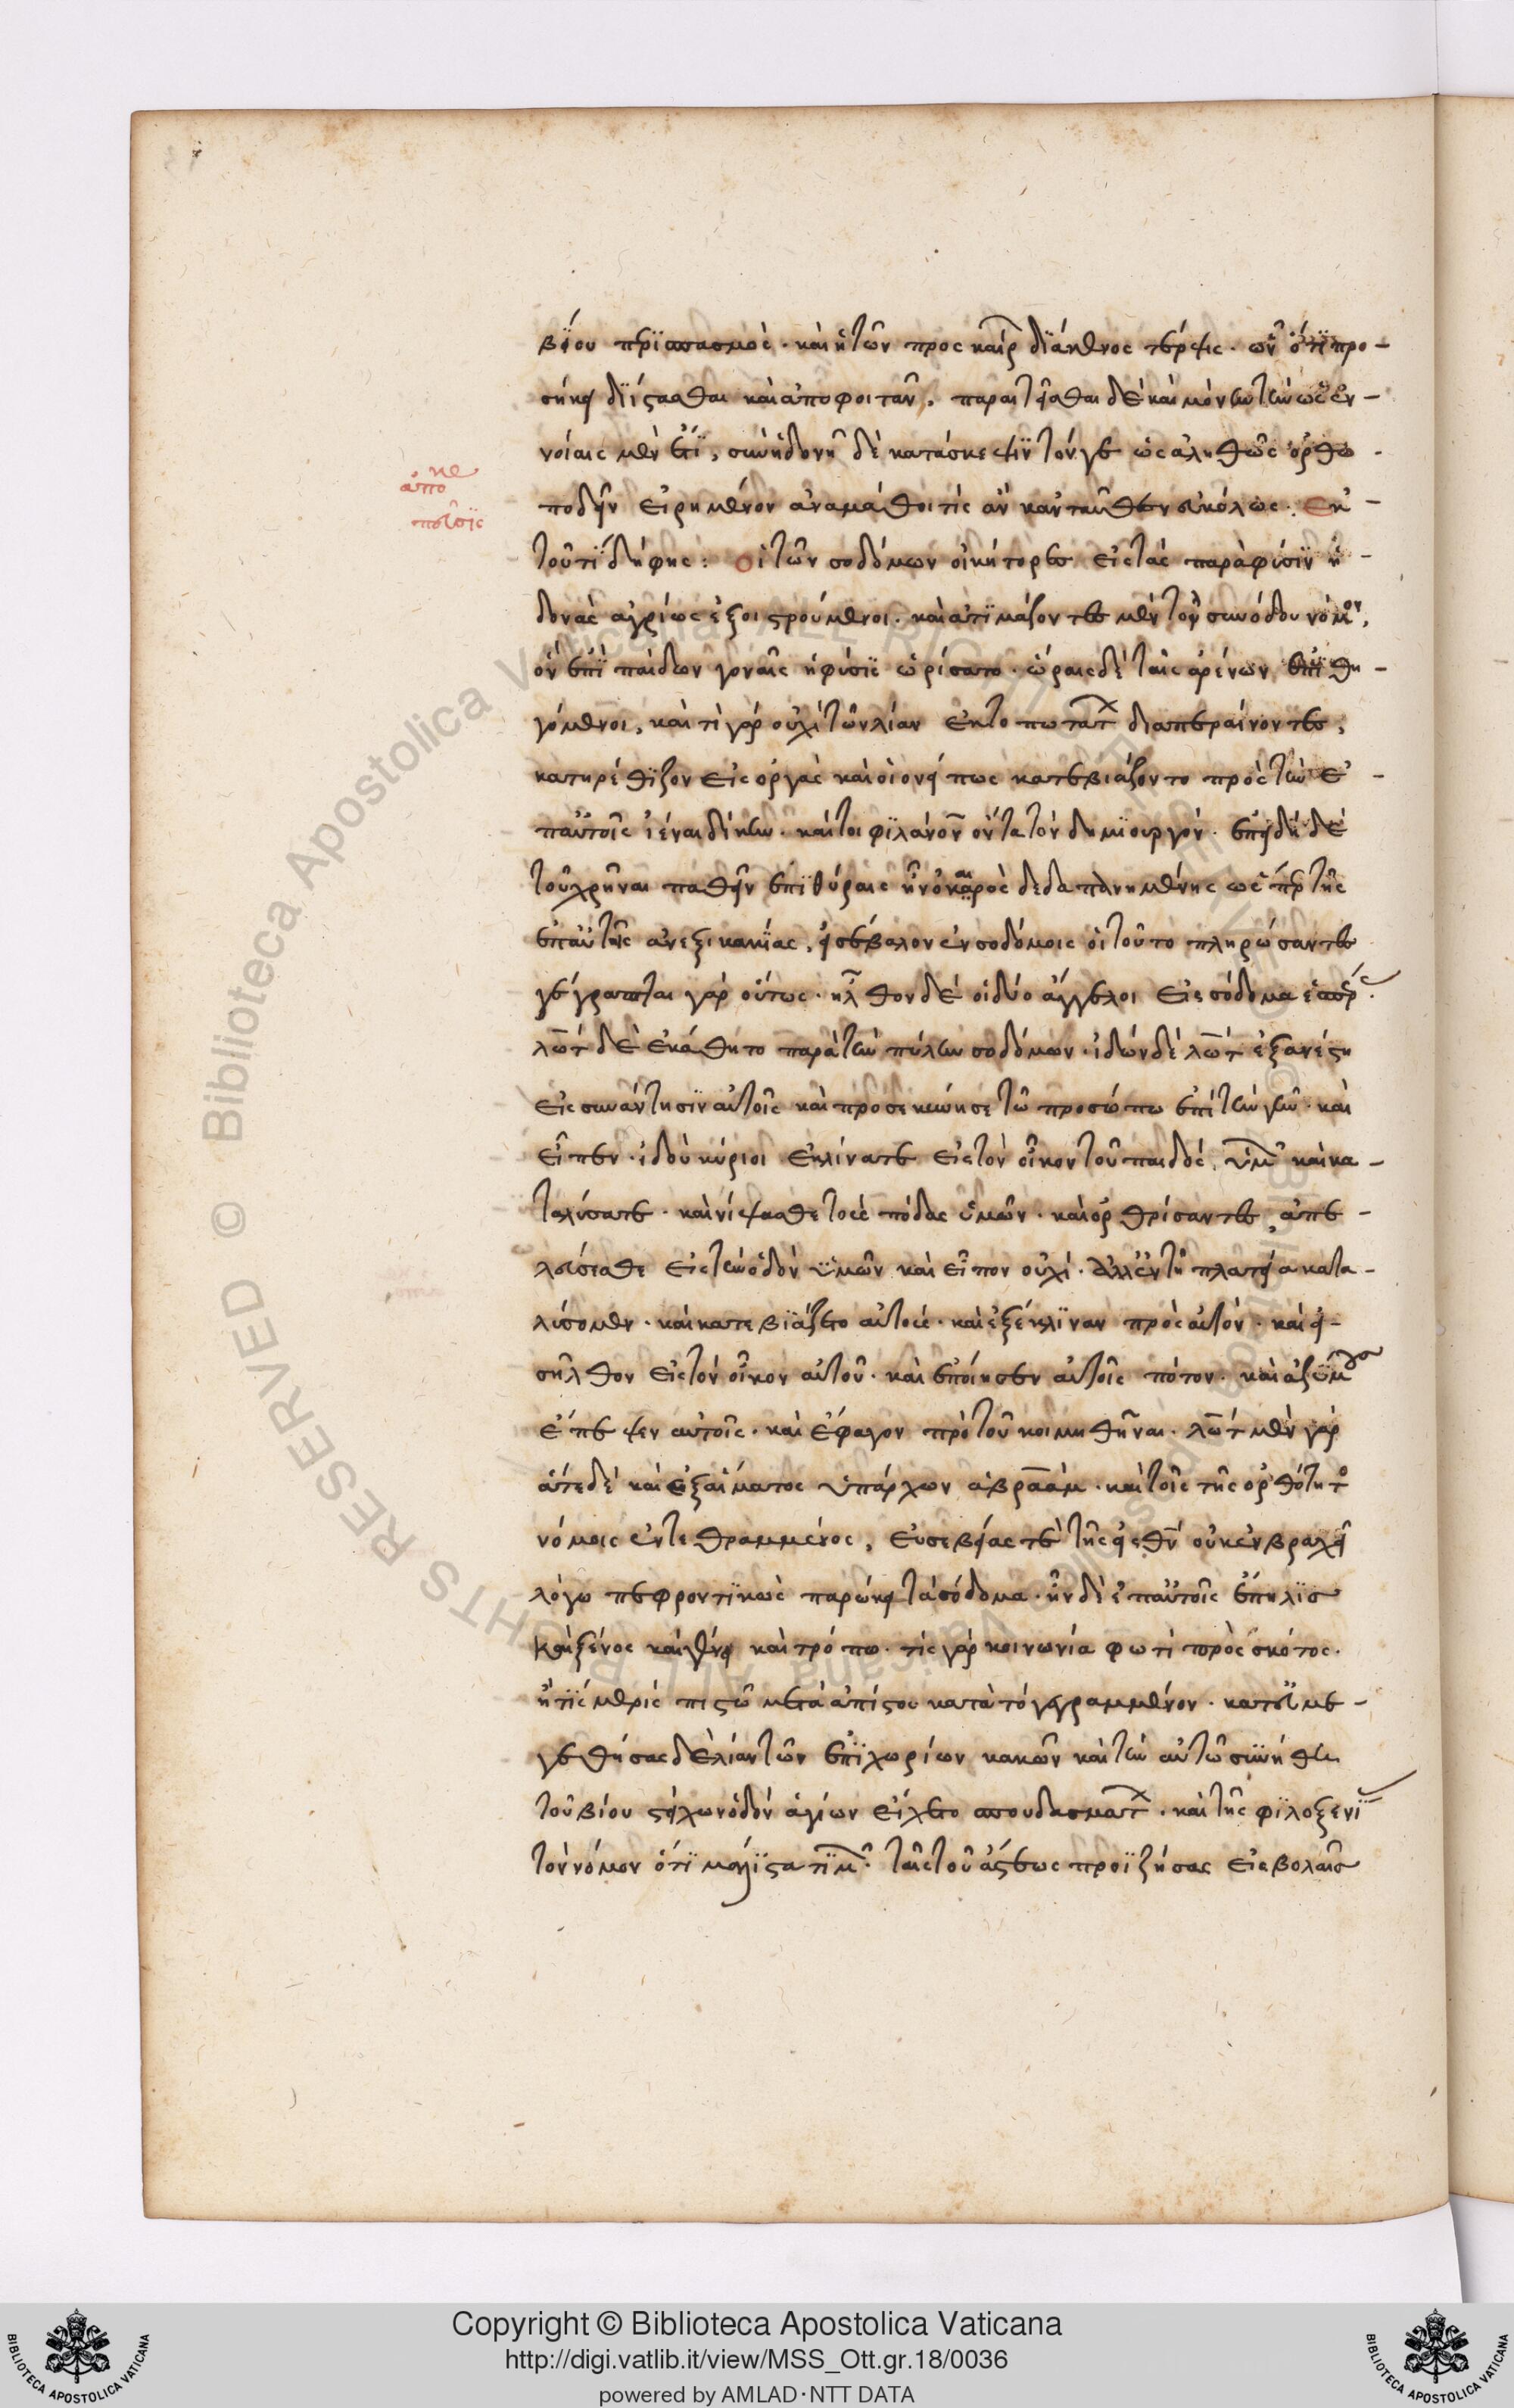 βίου περισπασμὸς. καὶ ἡ τῶν προς καιρ διάκενος τέρψις. ὧν ὅτι προ-
σήκει διίστασθαι καὶ ἀποφοιτᾶν, παραιτεῖσθαι δὲ καὶ μόνην τὴν ὡς ἐν-
νοίαις μὲν ἔτι, σὺν ἡδονῇ δὲ κατάσκεψιν τόν γε ὡς ἀληθῶς ὀρθο
ποδεῖν εἰρημένον ἀναμάθοι τίς ἂν κἀντεῦθεν εὐκόλως.
οἱ τῶν σοδόμων οἰκήτορες εἰς τὰς παρὰ φύσιν ἡ-
δονὰς ἀγρίως ἐξοιστρούμενοι. καὶ ἀτιμάζοντες μὲν τὸν συνόδου νόμον,
ὃν ἐπὶ παίδων γοναῖς ἡ φύσις ὡρίσατο. ὥραις δὲ ταῖς ἀρένων ἐπιθη-
γόμενοι, καὶ τί γὰρ οὐχὶ τῶν λίαν ἐκτοπωτάτ διαπεραίνοντες,
κατηρέθιζον εἰς ὀργὰς καὶ οἱονεί πως κατεβιάζοντο πρὸς τὴν ἐ-
π αὐτοῖς ἰέναι δίκην. καίτοι φιλάνον ὄντα τὸν δημιουργόν. ἐπειδὴ δὲ
τοῦ χρῆναι παθεῖν ἐπὶ θύραις ἦν ὁ καιρὸς δεδαπανημένης ὡς πρ τῆς
ἐπ αὐτοῖς ἀνεξικακίας, εἰσέβαλον ἐν σοδόμοις οἱ τοῦτο πληρώσαντες
γέγραπται γὰρ οὕτως. ἦλθον δὲ οἱ δύο ἄγγελοι εἰς σόδομα ἑσπέρ
λὼτ δὲ ἐκάθητο παρὰ τὴν πύλην σοδόμων. ἰδὼν δὲ λὼτ ἐξανέστη
εἰς συνάντησιν αὐτοῖς καὶ προσεκύνησε τῶ προσώπω ἐπὶ τὴν γῆν. καὶ
εἶπεν. ἰδοὺ κύριοι ἐκλίνατε εἰς τὸν οἶκον τοῦ παιδὸς ὑμ καὶ κα-
ταλύσατε. καὶ νίψασθε τοὺς πόδας ὑμῶν. καὶ ὀρθρίσαντες ἀπε-
λεύσεσθε εἰς τὴν ὁδὸν ὑμῶν καὶ εἶπον οὐχί. ἀλλ ἐν τῇ πλατείᾳ κατα-
λύσομεν. καὶ κατεβιάζετο αὐτοὺς. καὶ ἐξέκλιναν πρὸς αὐτόν. καὶ εἰ-
σῆλθον εἰς τὸν οἶκον αὐτοῦ. καὶ ἐποίησεν αὐτοῖς πότον. καὶ ἀζύμους
ἔπεψεν αὐτοῖς. καὶ ἔφαγον πρὸ τοῦ κοιμηθῆναι. λὼτ μὲν γὰρ
ἅτε δὲ καὶ ἐξ αἵματος ὑπάρχων ἀβραάμ. καὶ τοῖς τῆς ὀρθότητο
νόμοις ἐντεθραμμένος, εὐσεβείας τὲ τῆς εἰς θν οὐκ ἐν βραχεῖ
λόγω πεφροντικὼς παρώκει τὰ σόδομα. ἦν δὲ ἐπ αὐτοῖς ἔπηλις
καὶ ξένος καὶ γένει καὶ τρόπω. τίς γὰρ κοινωνία φωτὶ πρὸς σκότος.
ἢ τίς μερὶς πιστῶ μετὰ ἀπίστου κατὰ τὸ γεγραμμένον. κατευμε-
γεθήσας δὲ λίαν τῶν ἐπιχωρίων κακῶν καὶ τὴν αὐτῶ συνήθη
τοῦ βίου στείχων ὁδόν ἁγίων εἴχετο σπουδασμάτ. καὶ τῆς φιλοξενί
τὸν νόμον ὅτι μάλιστα τιμ. ταῖς τοῦ ἄστεως προϊζήσας εἰσβολαῖς
Copyright © Biblioteca Apostolica Vaticana
http://digi.vatlib.it/view/MSS_Ott.gr.18/0036
powered by AMLAD·NTT DATA